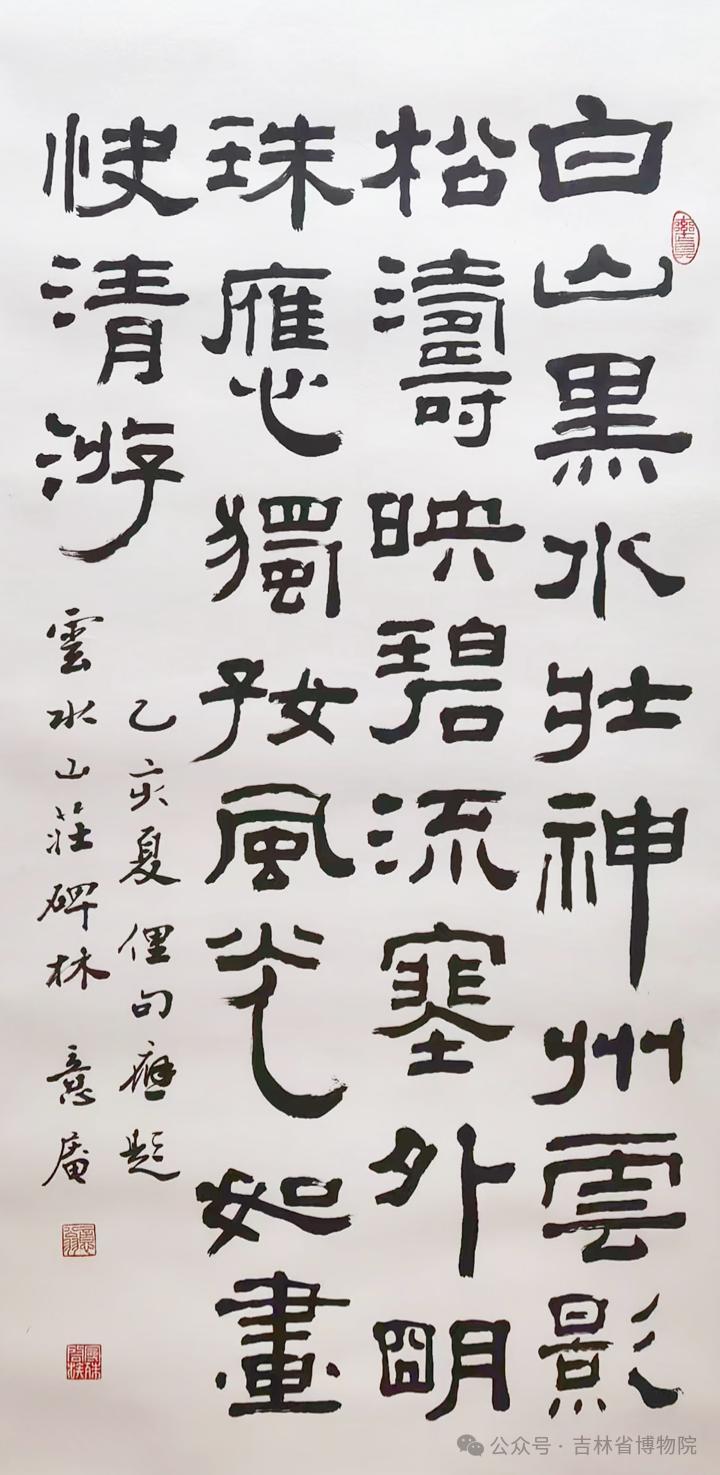 白山黑水壯神州雲影
松濤映碧流塞外明
珠應獨好風光如畫
快清游
乙亥夏俚句應題
雲水山莊碑林 意
率真
公众号 · 吉林省博物院